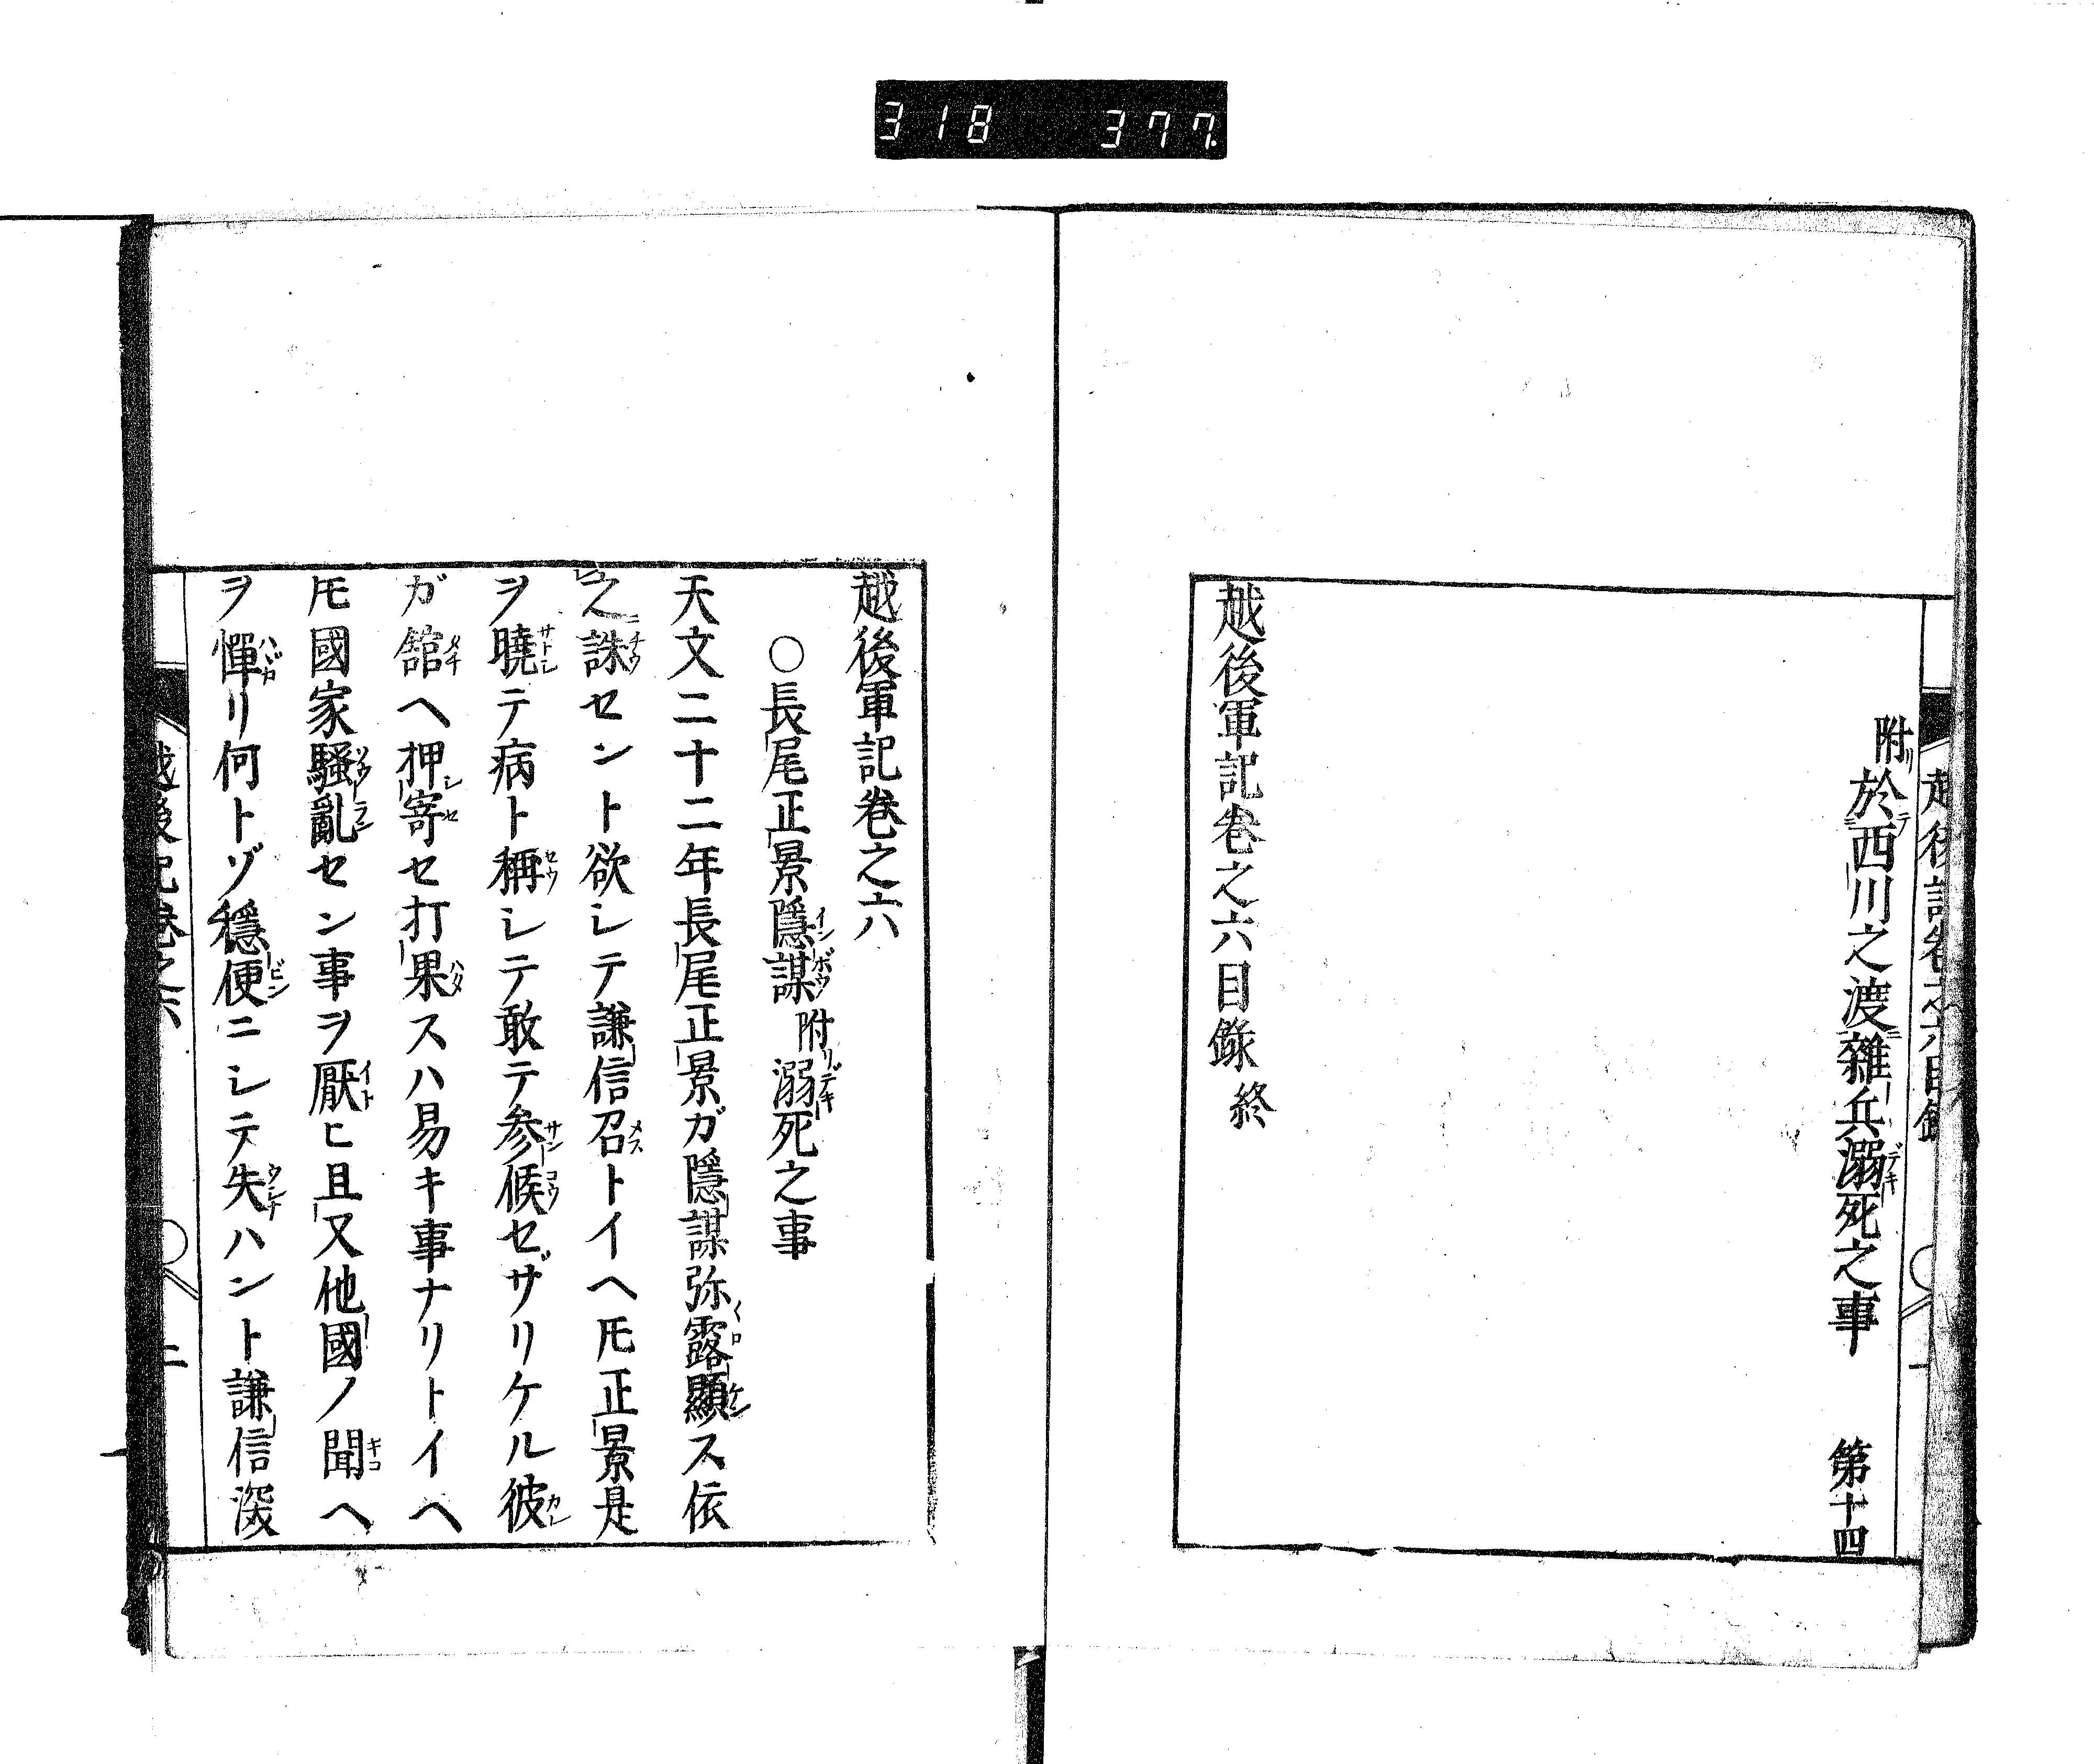 318 377
附リ於テ西川之渡ニ雜兵溺死之事 第十四
越後軍記卷之六目錄終
越後軍記卷之六
〇長尾正景隱謀附リ溺死之事
天文二十二年長尾正景ガ隱謀弥露顯ス依
之誅セント欲シテ謙信召トイヘ𪜈正景是
ヲ曉テ病ト稱シテ敢テ参候セザリケル彼
ガ舘ヘ押寄セ打果スハ易キ事ナリトイヘ
𪜈國家騷亂セン事ヲ厭ヒ且又他國ノ聞ヘ
ヲ憚リ何トゾ穩便ニシテ失ハント謙信深